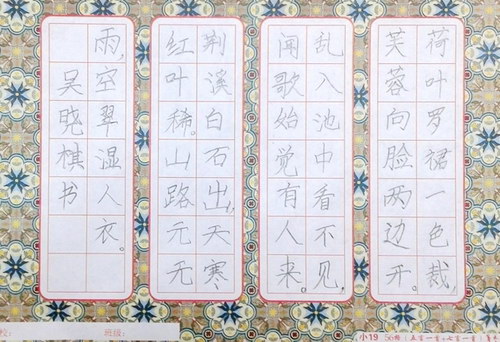 荷叶罗裙一色裁,
芙蓉向脸两边开。
乱入池中看不见,
闻歌始觉有人来。
荆溪白石出,天寒
红叶稀。山路元无
雨,空翠湿人衣。
吴晓棋书
校:
班级:
小19